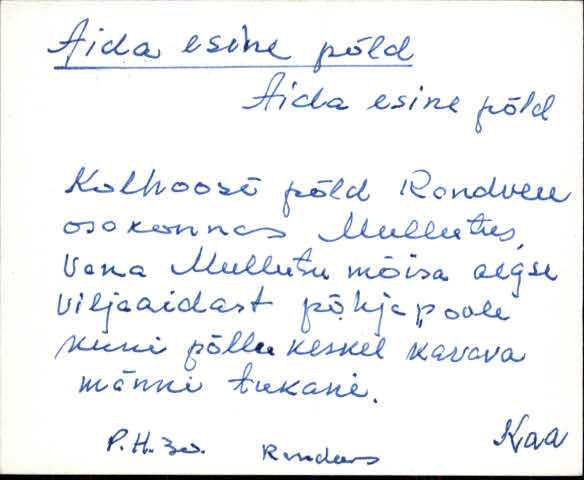 Aida esine põld
Aida esine põld
Kolhoosi põld Randvere
osakonnas Mullutus,
Vana Mullutu mõisa aegse
viljaaidast põhja poole
kuni põllu keskel kasvava
männi tukani.
P.H.
Kaa